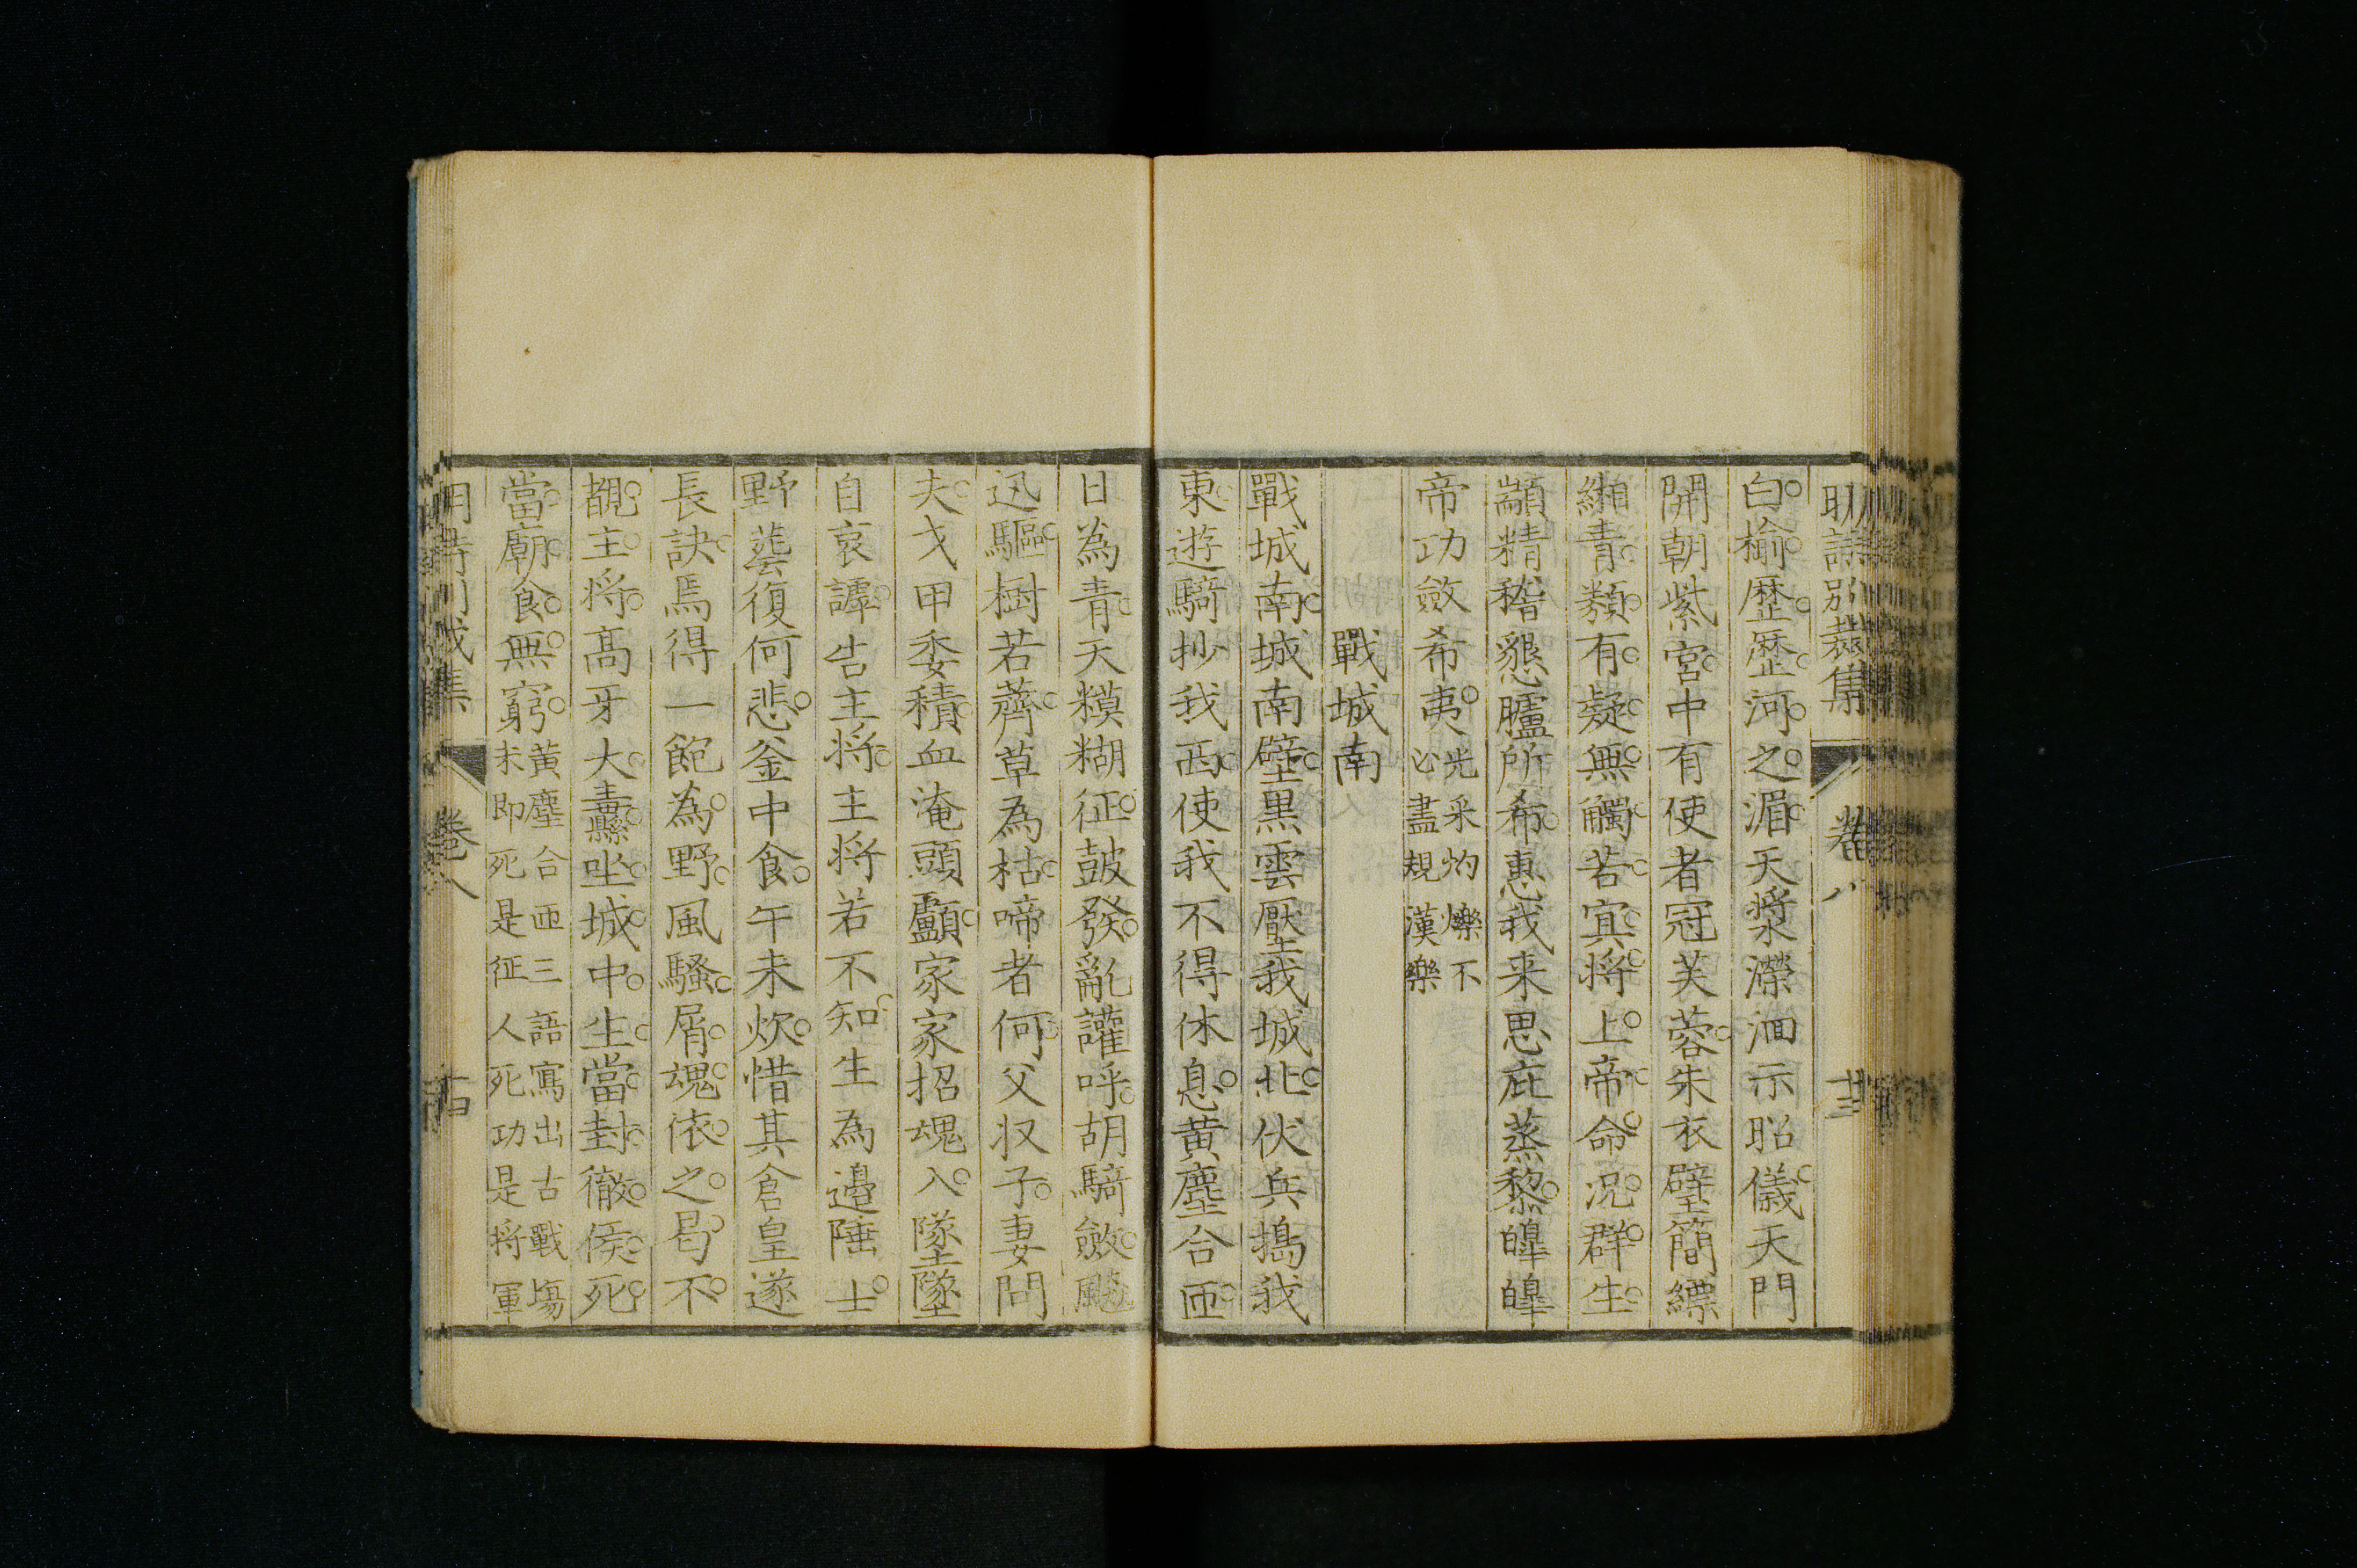 明詩別裁集 卷八 十三
白榆歷歷河之湄天漿瀠洄示昭儀天門
開朝紫宮中有使者冠芙蓉朱衣璧簡縹
緗青類有凝無觸若寘將上帝命況群生
顓精稽懇臚所希惠我来思庇蒸黎皥皥
帝功斂希夷光采灼爍不
必盡規漢樂
戰城南
戰城南城南壁黑雲壓我城北伏兵搗我
東遊騎抄我西使我不得休息黃塵合匝
日為青天糢糊征鼓發亂讙呼胡騎斂颷
迅驅樹若薺草為枯啼者何父収子妻問
夫戈甲委積血淹頭顱家家招魂入墜墜
自哀謼告主將主将若不知生為邊陲士
野葬復何悲釜中食午未炊惜其倉皇遂
長訣焉得一飽為野風騷屑魂依之曷不
覩主將高牙大纛坐城中生當封徹侯死
當廟食無窮黃塵合匝三語寫出古戰塲
未即死是征人死功是將軍
明詩別裁集 卷八 十四